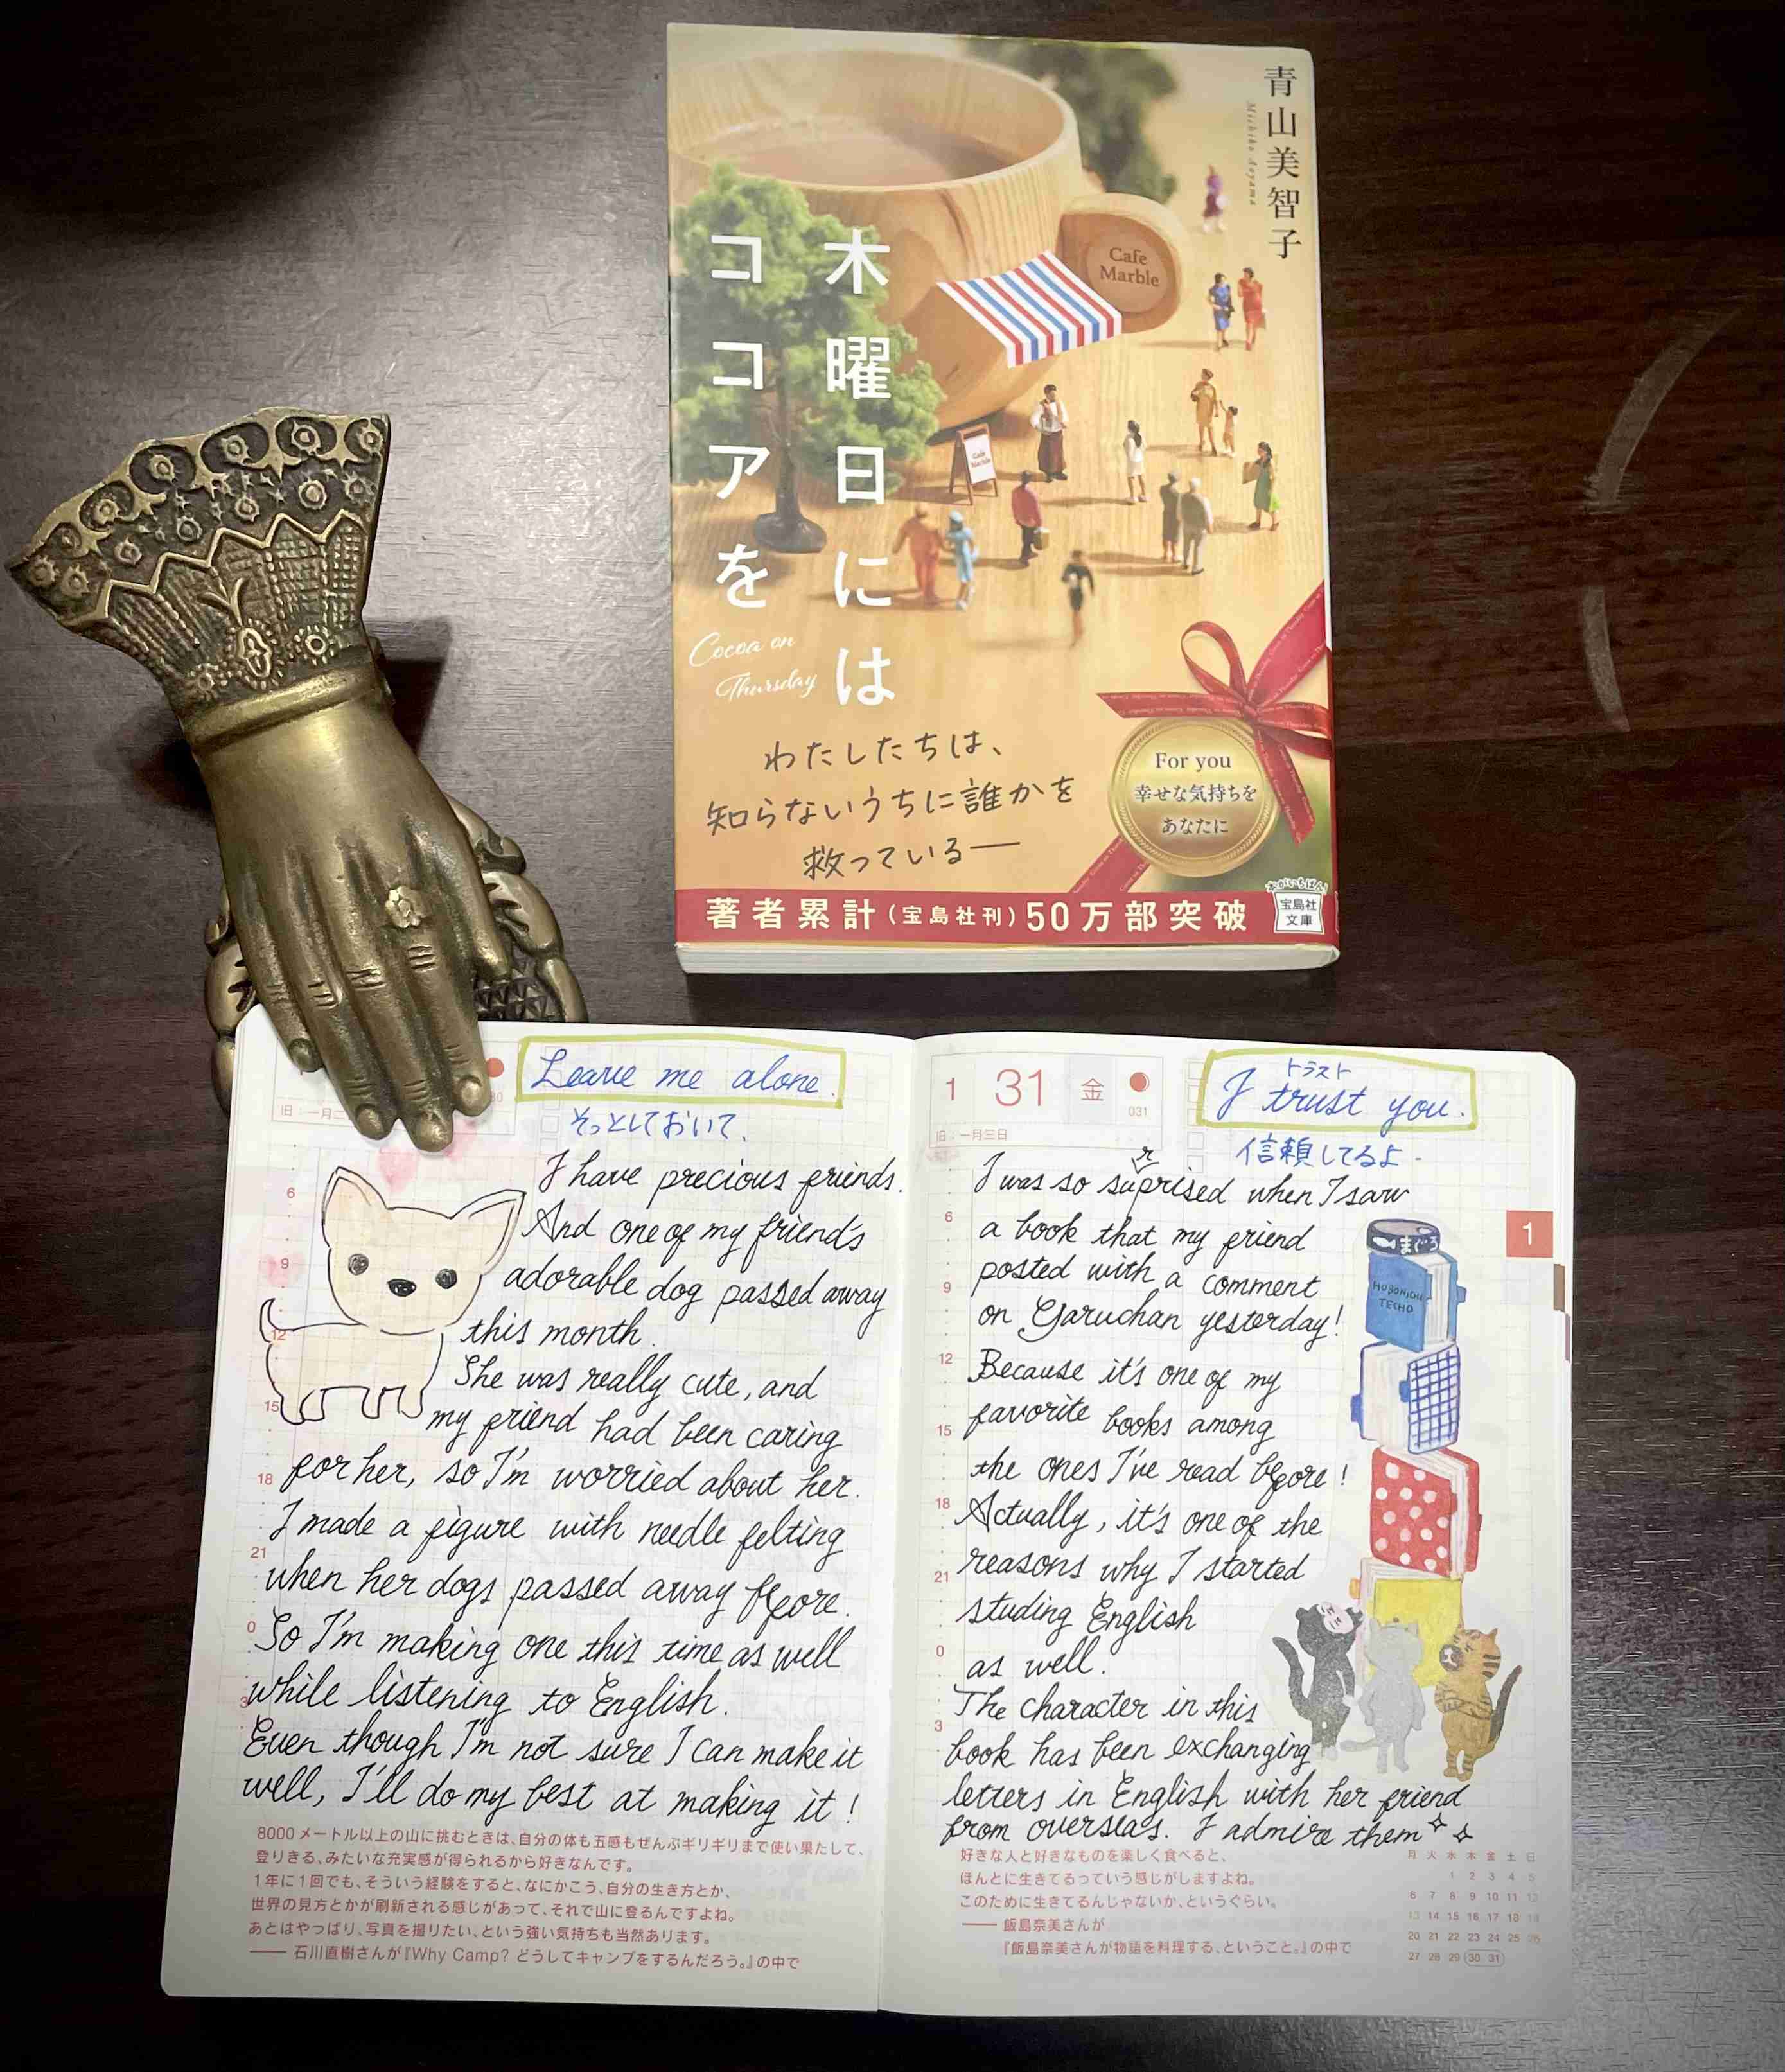 青山美智子
Michiko Aoyama
木曜日には
ココアを
Cocoa on
Thursday
Cafe
Marble
Cafe
Marble
わたしたちは、
知らないうちに誰かを
救っている——
For you
幸せな気持ちを
あなたに
著者累計(宝島社刊)50万部突破
本がいちばん!
宝島社
文庫
Leave me alone.
そっとしておいて、
旧:一月二
I have precious friends.
And one of my friend's
adorable dog passed away
this month.
She was really cute, and
my friend had been caring
for her, so I'm worried about her.
I made a figure with needle felting
when her dogs passed away before.
So I'm making one this time as well
while listening to English.
Even though I'm not sure I can make it
well, I'll do my best at making it!
6
9
12
15
18
21
0
3
8000メートル以上の山に挑むときは、自分の体も五感もぜんぶギリギリまで使い果たして、
登りきる、みたいな充実感が得られるから好きなんです。
1年に1回でも、そういう経験をすると、なにかこう、自分の生き方とか、
世界の見方とかが刷新される感じがあって、それで山に登るんですよね。
あとはやっぱり、写真を撮りたい、という強い気持ちも当然あります。
—— 石川直樹さんが『Why Camp? どうしてキャンプをするんだろう。』の中で
1 31 金
031
旧:一月三日
トラスト
I trust you.
信頼してるよ-
r
I was so suprised when I saw
a book that my friend
posted with a comment
on Garuchan yesterday!
Because it's one of my
favorite books among
the ones I've read before!
Actually, it's one of the
reasons why I started
studing English
as well.
The character in this
book has been exchanging
letters in English with her friend
from overseas. I admire them
6
9
12
15
18
21
0
3
まぐろ
HOBONICHI
TECHO
1
好きな人と好きなものを楽しく食べると、
ほんとに生きてるっていう感じがしますよね。
このために生きてるんじゃないか、というぐらい。
—— 飯島奈美さんが
『飯島奈美さんが物語を料理する、ということ。』の中で
月 火 水 木 金 土 日
1 2 3 4 5
6 7 8 9 10 11 12
13 14 15 16 17 18 19
20 21 22 23 24 25 26
27 28 29 30 31